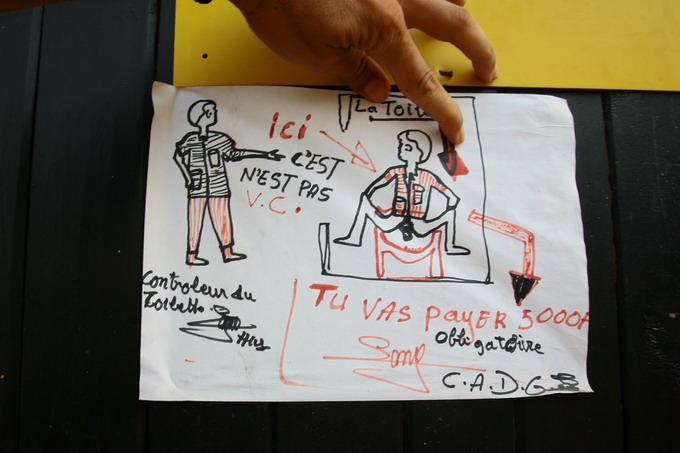 La Toi
ici
C'EST
N'EST PAS
V.C.
Controleur du
TU VAS PAYER 5000F
Obligatoire
C.A.D.G